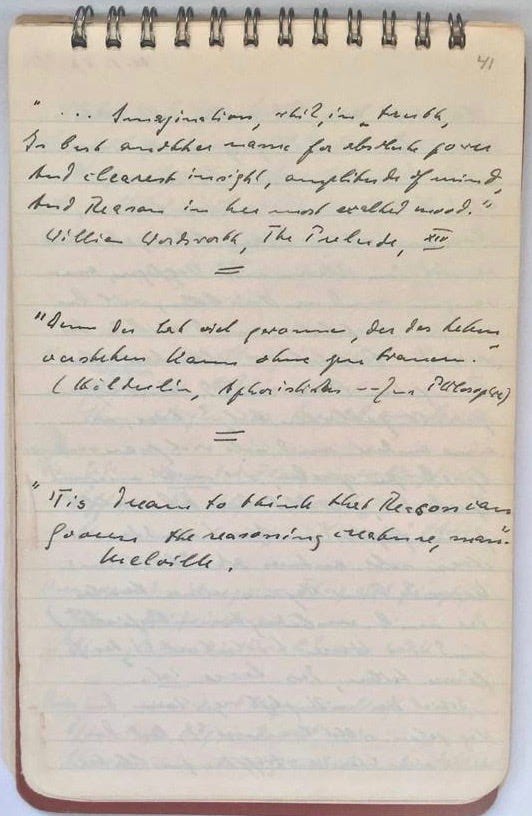 41
"... Imagination, which, in truth,
Is but another name for absolute power
And clearest insight, amplitude of mind,
And Reason in her most exalted mood."
William Wordsworth, The Prelude, XIV
"Denn der hat viel gewonnen, der das Leben
verstehen kann ohne zu trauern."
(Hölderlin, Aphoristisches -- Philosophie)
"Tis Dream to think that Reason can
govern the reasoning creature, man".
Melville.